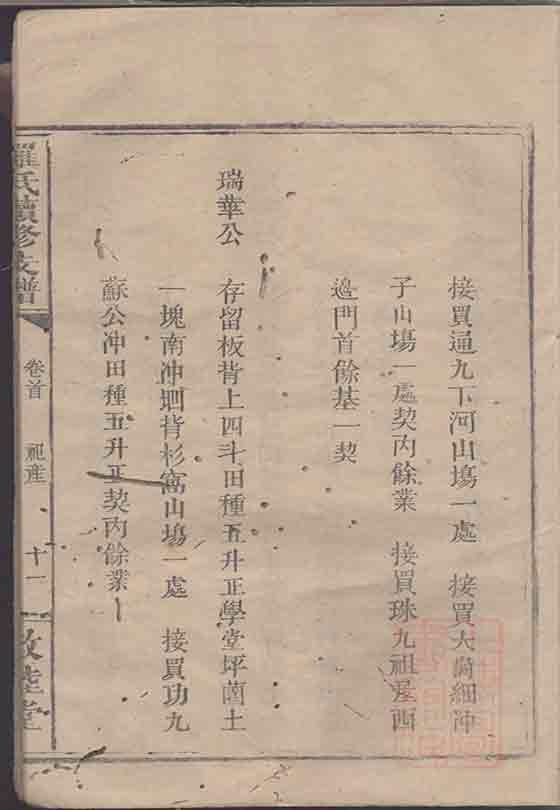 接買通九下河山塲一處　接買大崗細冲
子山塲一處契內餘業　接買珠九祖屋西
邉門首餘基一契
瑞華公　存留板背上四斗田種五升正學堂坪菌土
一塊南冲垇背杉窩山塲一處　接買功九
蘇公冲田種五升正契內餘業
羅氏續修支譜　卷首　祀産　十一　敦睦堂